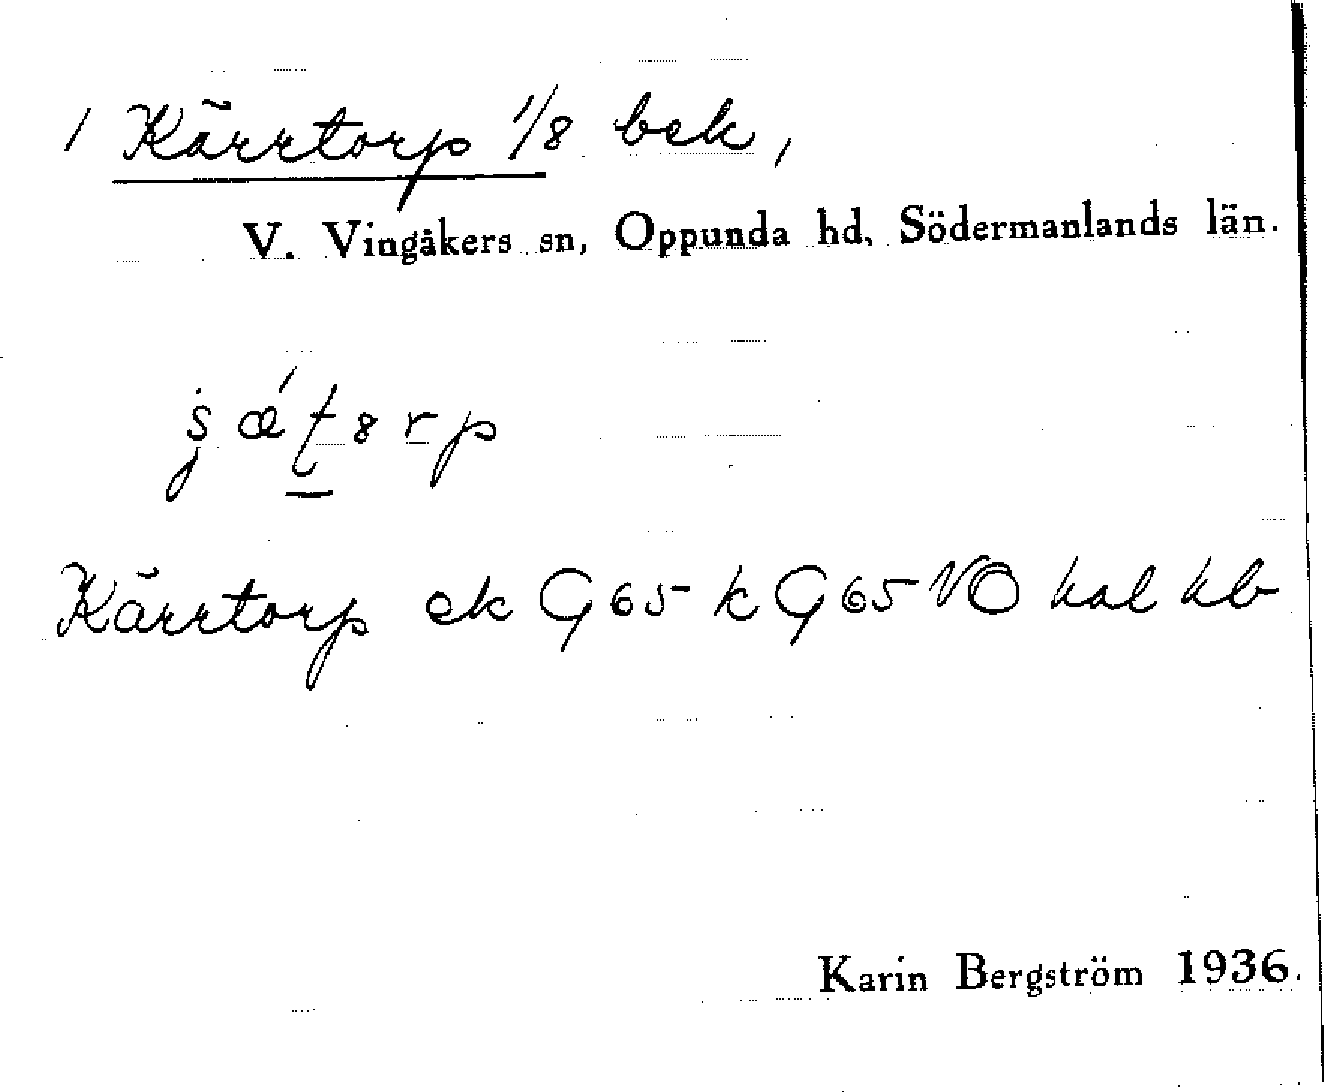 1 Kärrtorp 1/8 bek,
V. Vingåkers sn, Oppunda hd, Södermanlands län.
Kärrtorp ek G 65 k G 65 NO hal hb
Karin Bergström 1936.